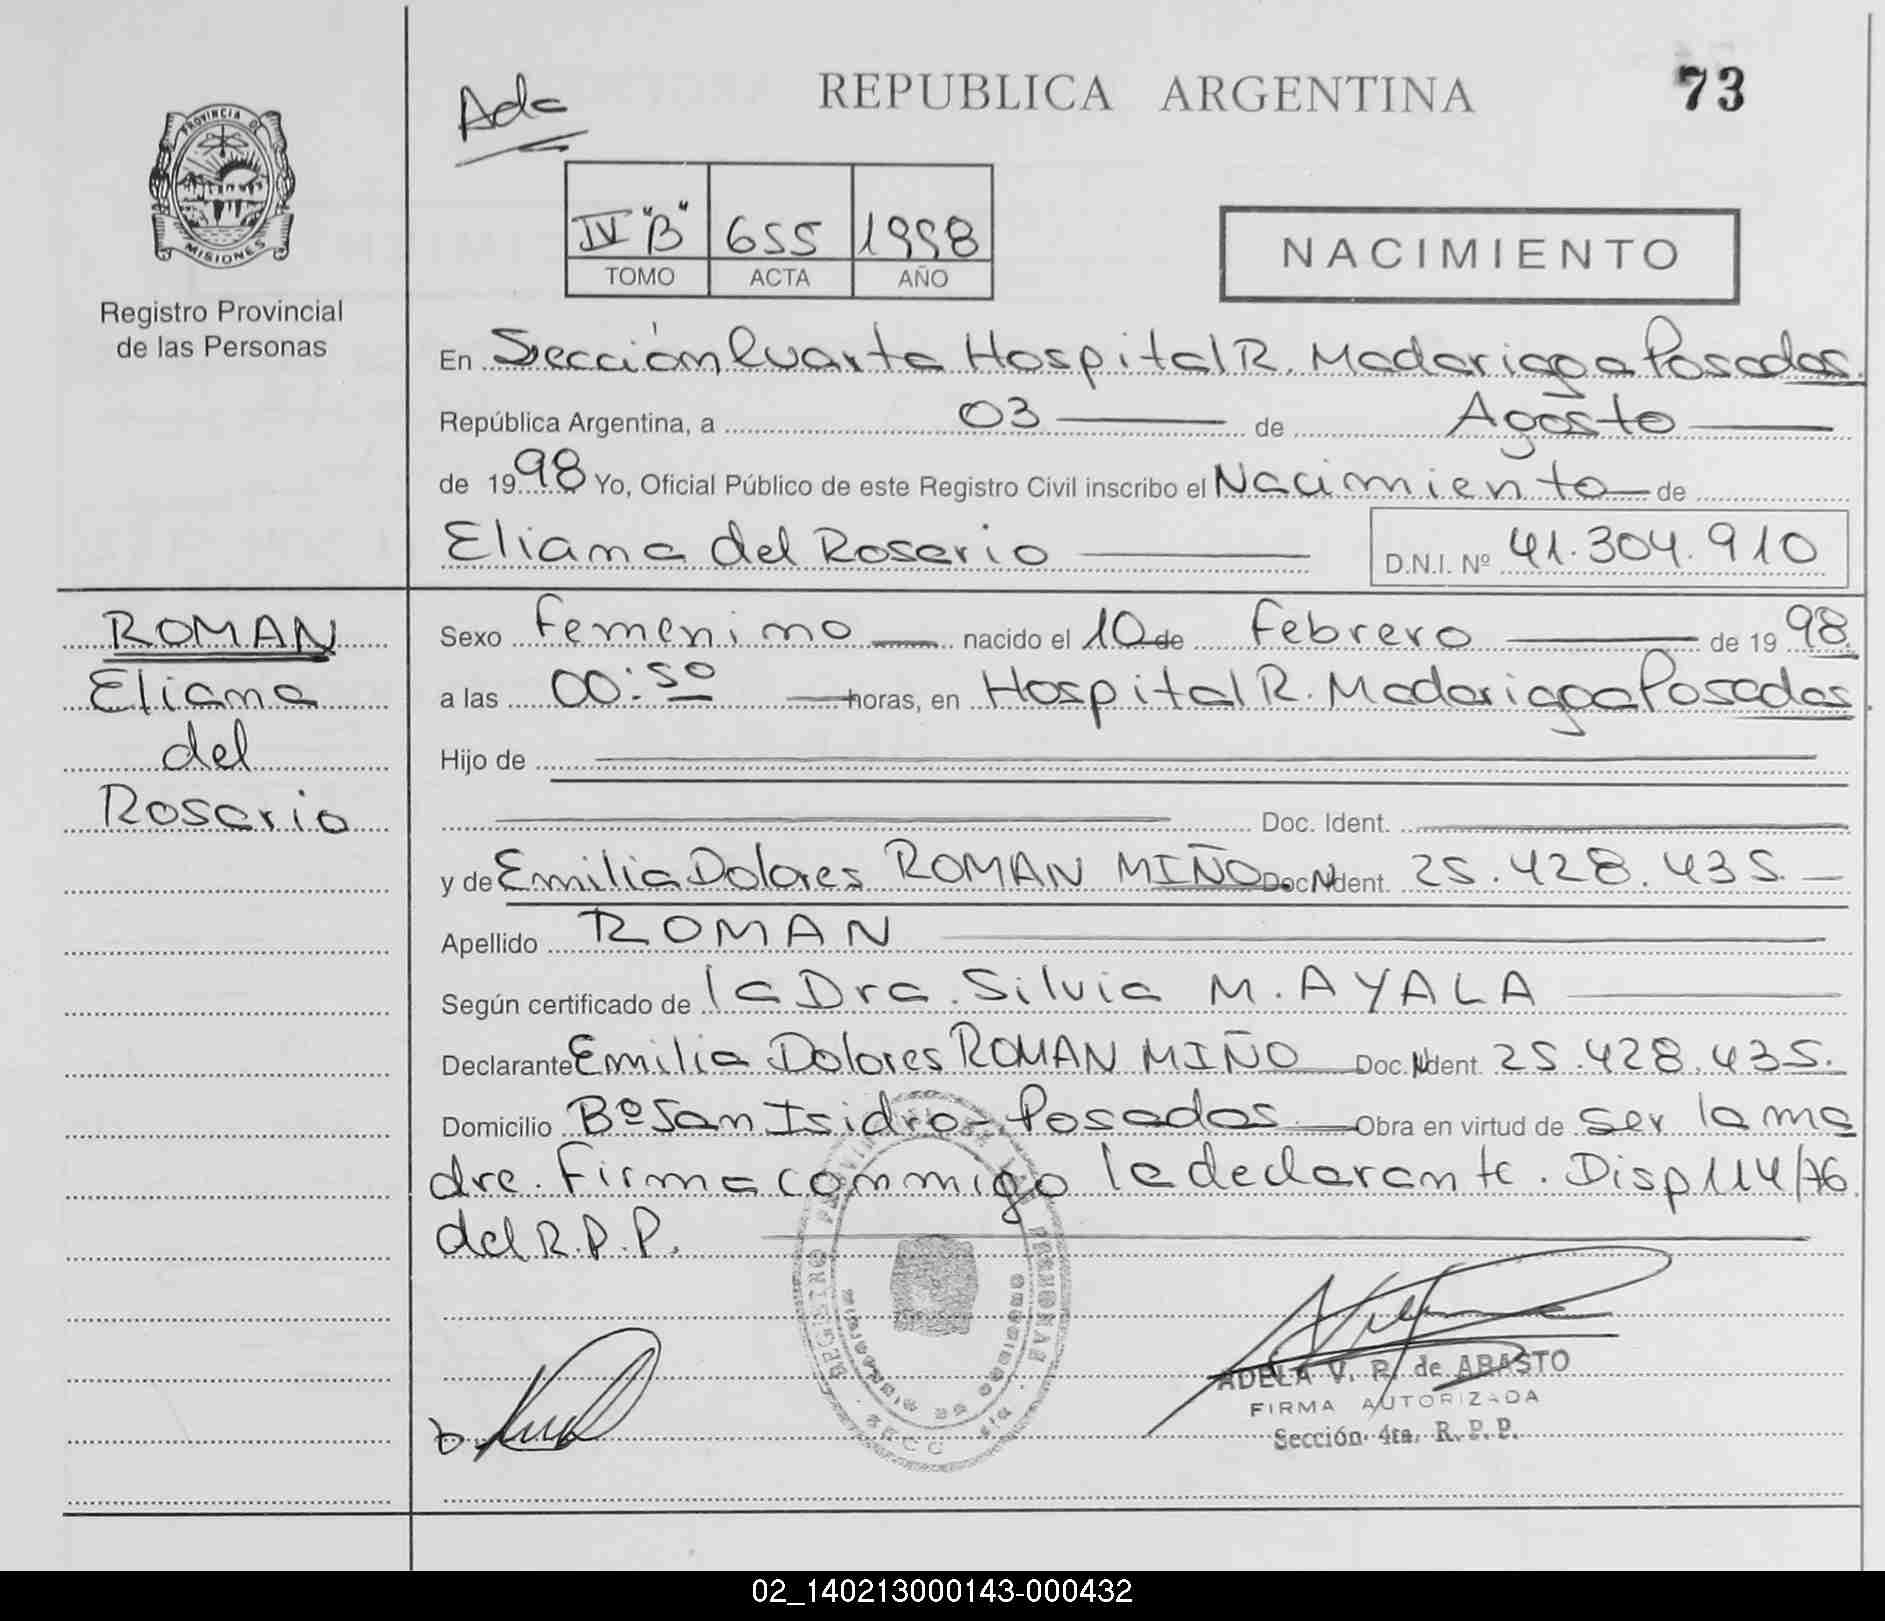 REPUBLICA ARGENTINA
73
PROVINCIA DE
MISIONES
Registro Provincial
de las Personas
IV "B" 655 1998
TOMO ACTA AÑO
NACIMIENTO
En Sección Cuarta Hospital R. Madariaga Posadas.
República Argentina, a 03 de Agosto
de 1998 Yo, Oficial Público de este Registro Civil inscribo el Nacimiento de
Eliana del Rosario D.N.I. Nº 41.304.910
ROMAN
Eliana
del
Rosario
Sexo Femenino nacido el 10 de Febrero de 1998.
a las 00:50 horas, en Hospital R. Madariaga Posadas.
Hijo de
Doc. Ident.
y de Emilia Dolores ROMAN MIÑO Doc. Ident. 25.428.435.
Apellido ROMAN
Según certificado de la Dra. Silvia M. AYALA
Declarante Emilia Dolores ROMAN MIÑO Doc. Ident. 25.428.435.
Domicilio Bº San Isidro - Posadas Obra en virtud de ser la ma
dre. Firma conmigo la declarante. Disp 114/76
del R.P.P.
ADELA V. P. de ABASTO
FIRMA AUTORIZADA
Sección 4ta. R.P.P.
02_140213000143-000432